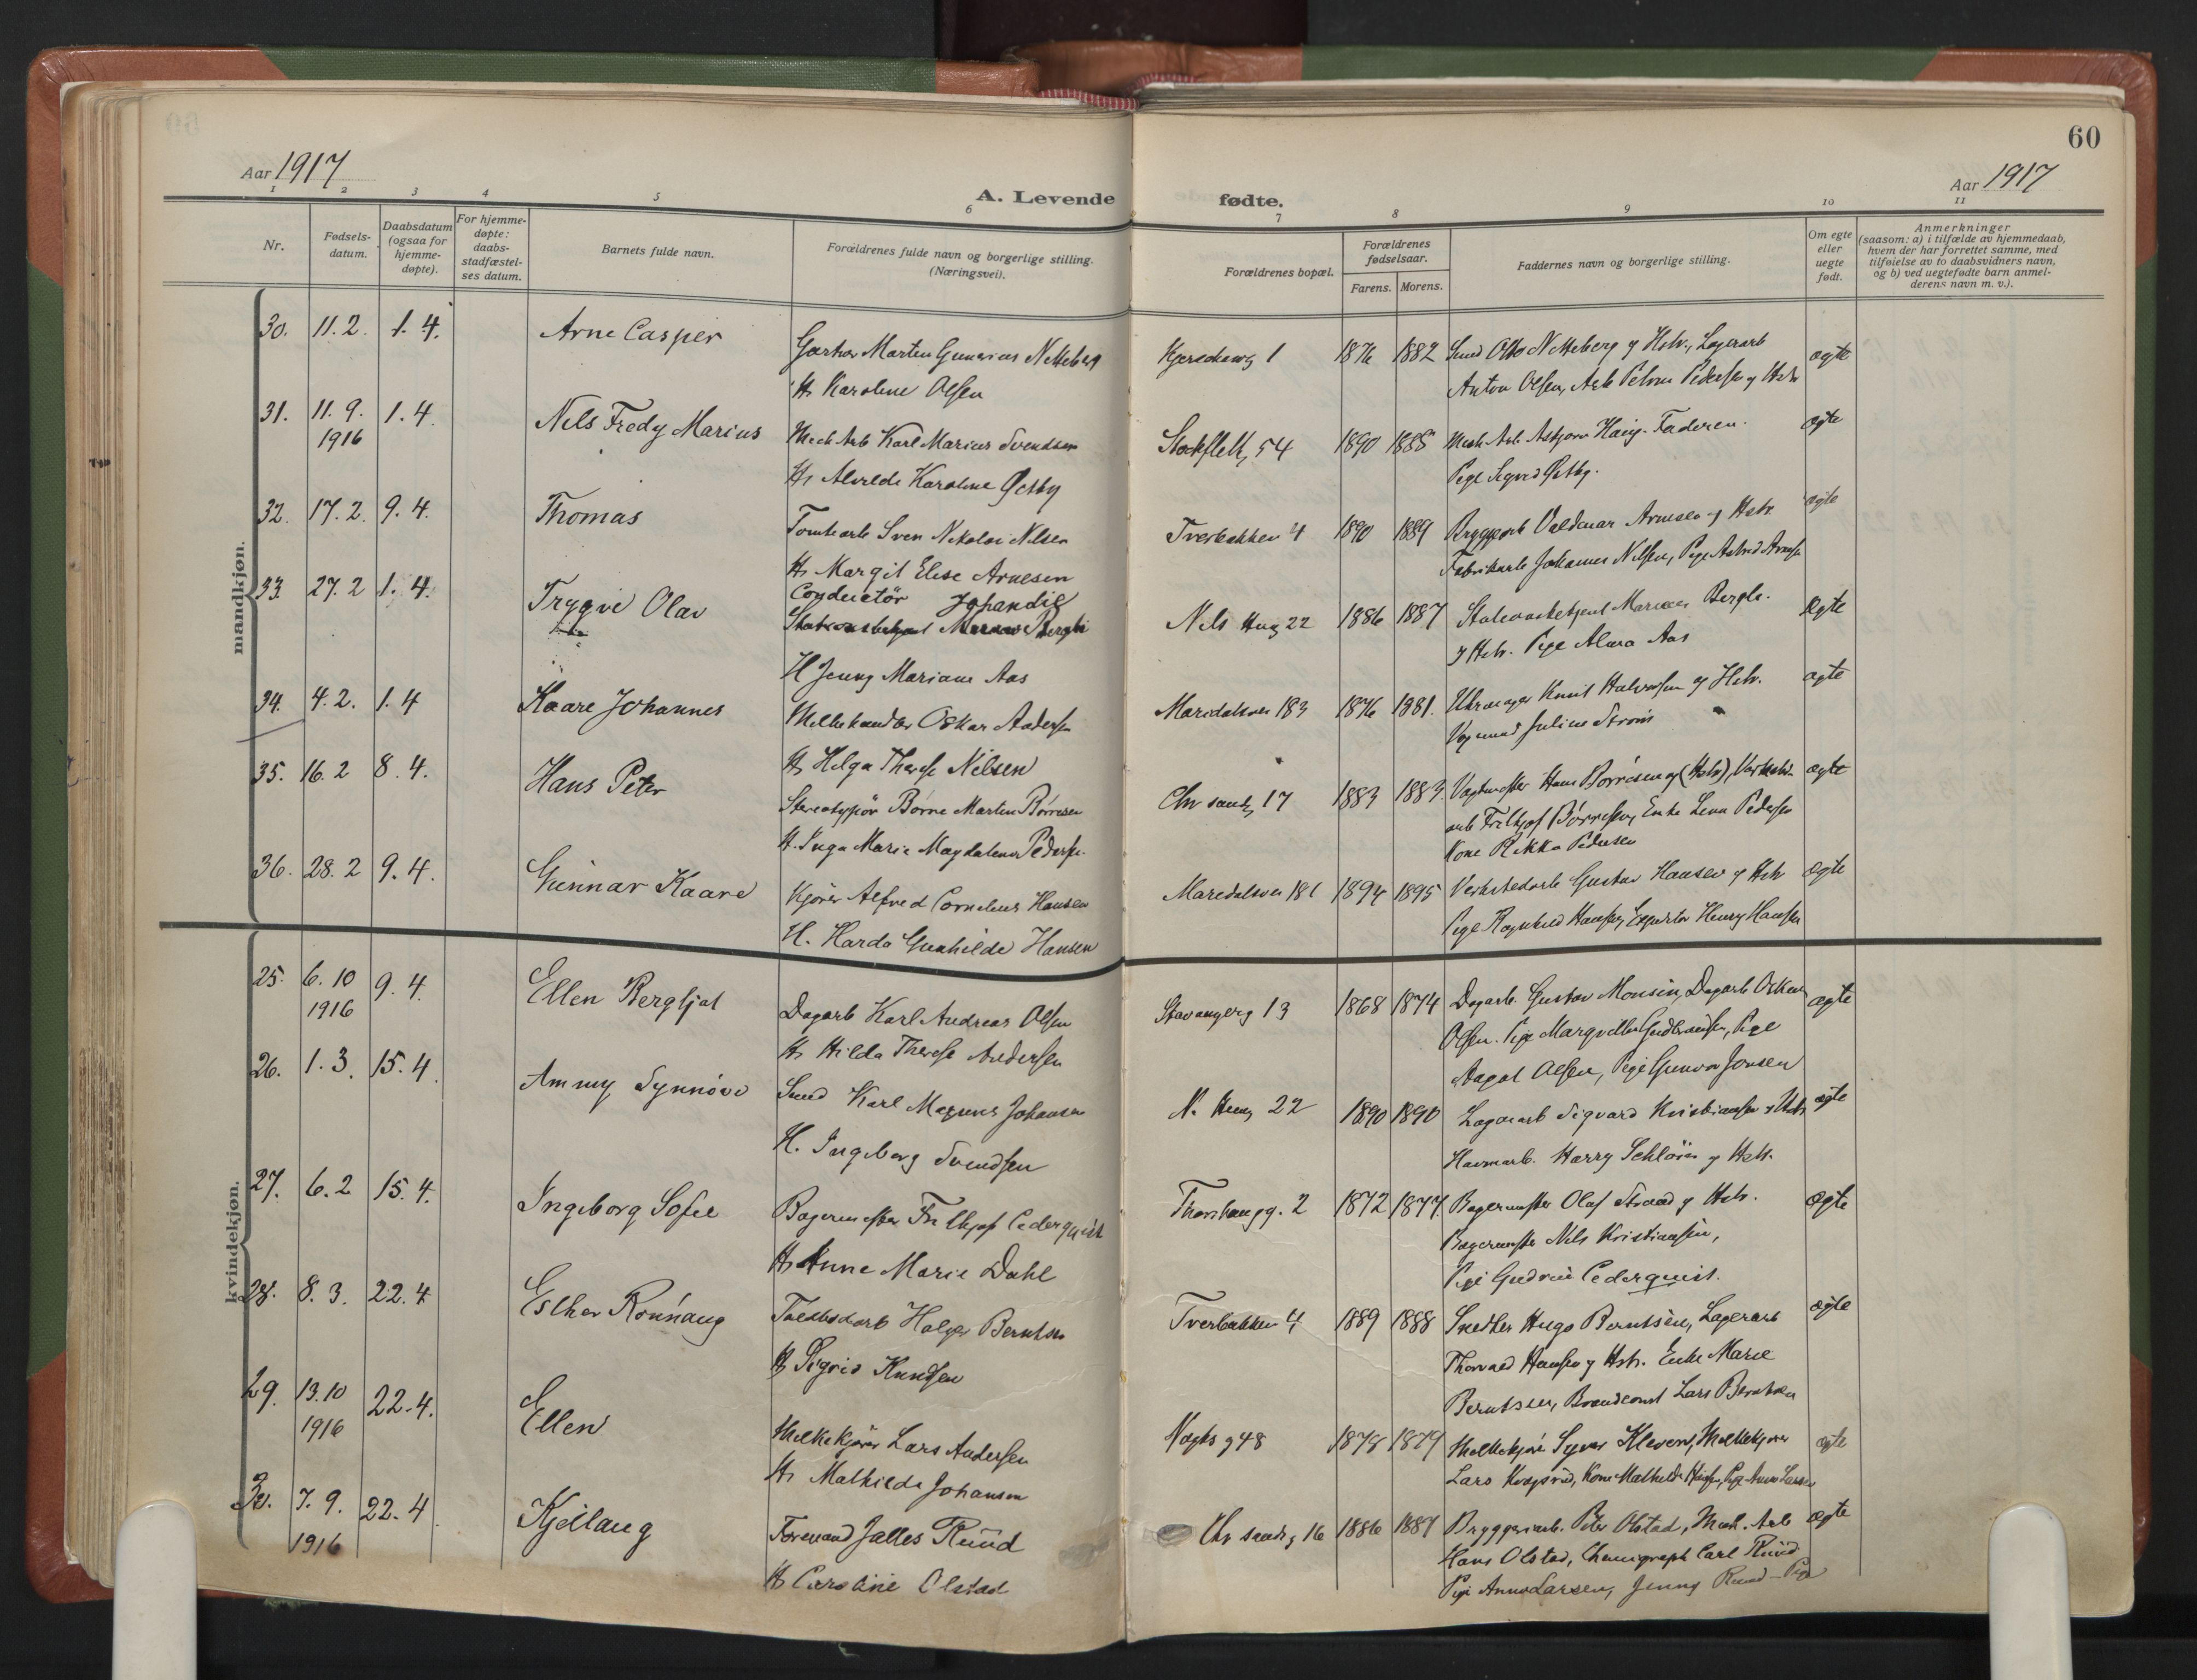 60
Aar 1917
Aar 1917
A. Levende fødte.
1 2 3 4 5 6 7 8 9 10 11
Nr.
Fødsels-
datum.
Daabsdatum
(ogsaa for
hjemme-
døpte).
For hjemme-
døpte:
daabs-
stadfæstel-
ses datum.
Barnets fulde navn.
Forældrenes fulde navn og borgerlige stilling.
(Næringsvei).
Forældrenes bopæl.
Forældrenes
fødselsaar.
Farens. Morens.
Faddernes navn og borgerlige stilling.
Om egte
eller
uegte
født.
Anmerkninger
(saasom: a) i tilfælde av hjemmedaab,
hvem der har forrettet samme, med
tilføielse av to daabsvidners navn,
og b) ved uegtefødte barn anmel-
derens navn m. v.).
mandkjøn.
30. 11. 2. 1. 4. Arne Casper
Marten Gunerius Netteberg
H. Karoline Olsen
1 1876 1882 Smed Otto Netteberg og Hstr., Lagerarb
Anton Olsen, Arb Pedersen og Hstr
egte
31. 11. 9. 1. 4.
1916
Nels Fredy Marius
Mek Arb Karl Marius Svendsen
H. Alvilde Karoline Østby
Stockflett 54 1890 1888 Mek Arb Asbjørn Haug. Faderen.
Pige Sigrid Østby.
egte
32. 17. 2. 9. 4. Thomas
Tomtearb Sven Nikolai Nilsen
H. Margit Elise Arnesen
Tverbakken 4 1890 1889 Bryggearb Valdemar Arnesen og Hstr
Fabrikarb Johannes Nilsen, Pige Astrid Arnesen
egte
33. 27. 2 1. 4. Trygve Olav
Conductör
Bergli
H Jenny Mariane Aas
Nils Hug 22 1886 1887 Marius Bergli.
og Hstr. Pige Alvra Aas
egte
34. 4. 2. 1. 4 Kaare Johannes
Melkehandler Oskar Andersen
H. Helga Therese Nilsen
Maridalsvei 183 1876 1881. Uhrmager Knut Halvorsen og Hstr.
Juline Strøm
egte
35. 16. 2 8. 4. Hans Peter
Stereotypör Börre Martin Börresen
H. Inga Marie Magdalena Pedersen.
Chr sandg 17 1883 1883. Vagtmester Hans Börresen og (Hstr), Verksted-
arb Fritjof Börresen, Enke Lena Pedersen
Kone Rikka Pedersen
egte
36. 28. 2 9. 4. Gunnar Kaare
Kjører Alfred Cornelius Hansen
H. Harda Gunhilde Hansen
Maridalsvei 181 1894 1895 Verkstedarb Gustav Hansen og Hstr
Pige Ragnhild Hansen, Expeditør Henry Hansen
egte
kvindekjøn.
25. 6. 10 9. 4.
1916
Ellen Bergljot
Dagarb Karl Andreas Olsen
H. Hilda Therese Andersen
Stavangerg 13 1868 1874 Dagarb. Gustav Monsen, Dagarb Oskar
Olsen. Pige Margrethe Gudbrandsen, Pige
Aagot Olsen, Pige Gunvor Jonsen
egte
26. 1. 3. 15. 4. Ammy Synnöve
Smed Karl Magnus Johansen
H. Ingeborg Svendsen
N. Hug 22 1890 1890 Lagerarb Sigvard Kristiansen og Hstr
Havnearb. Harry Schlöser og Hstr.
egte
27. 6. 2 15. 4. Ingeborg Sofie
Bagermester Fritjof Cederquist
H. Anne Marie Dahl
Thorshaugg. 2 1872 1877 Bagermester Olaf Straad og Hstr.
Bagermester Nils Kristiansen,
Pige Gudrun Cederquist.
egte
28. 8. 3. 22. 4 Esther Rönnaug
Holger Berntsen
H. Sigrid Knudsen
Tverbakken 4 1889 1888 Snedker Hugo Berntsen, Lagerarb
Thorvald Hansen og Hstr. Enke Marie
Berntsen, Brandconst Lars Berntsen
egte
29. 13. 10 22. 4.
1916
Ellen
Melkekjører Lars Andersen
H. Mathilde Johansen
Vogts g 48 1878 1879 Melkekjører Syver Kleven, Melkekjører
Lars, Kone Mathilde, Pige Anna Larsen
egte
30. 7. 9. 22. 4
1916
Kjellaug
Formand Jalles Ruud
H. Caroline Olstad
Chr sandg 16 1886 1887 Bryggeriarb. Peter Olstad, Mek. Arb
Hans Olstad, Chemigraph Carl Ruud
Pige Anna Larsen, Jenny Ruud - Pige
egte